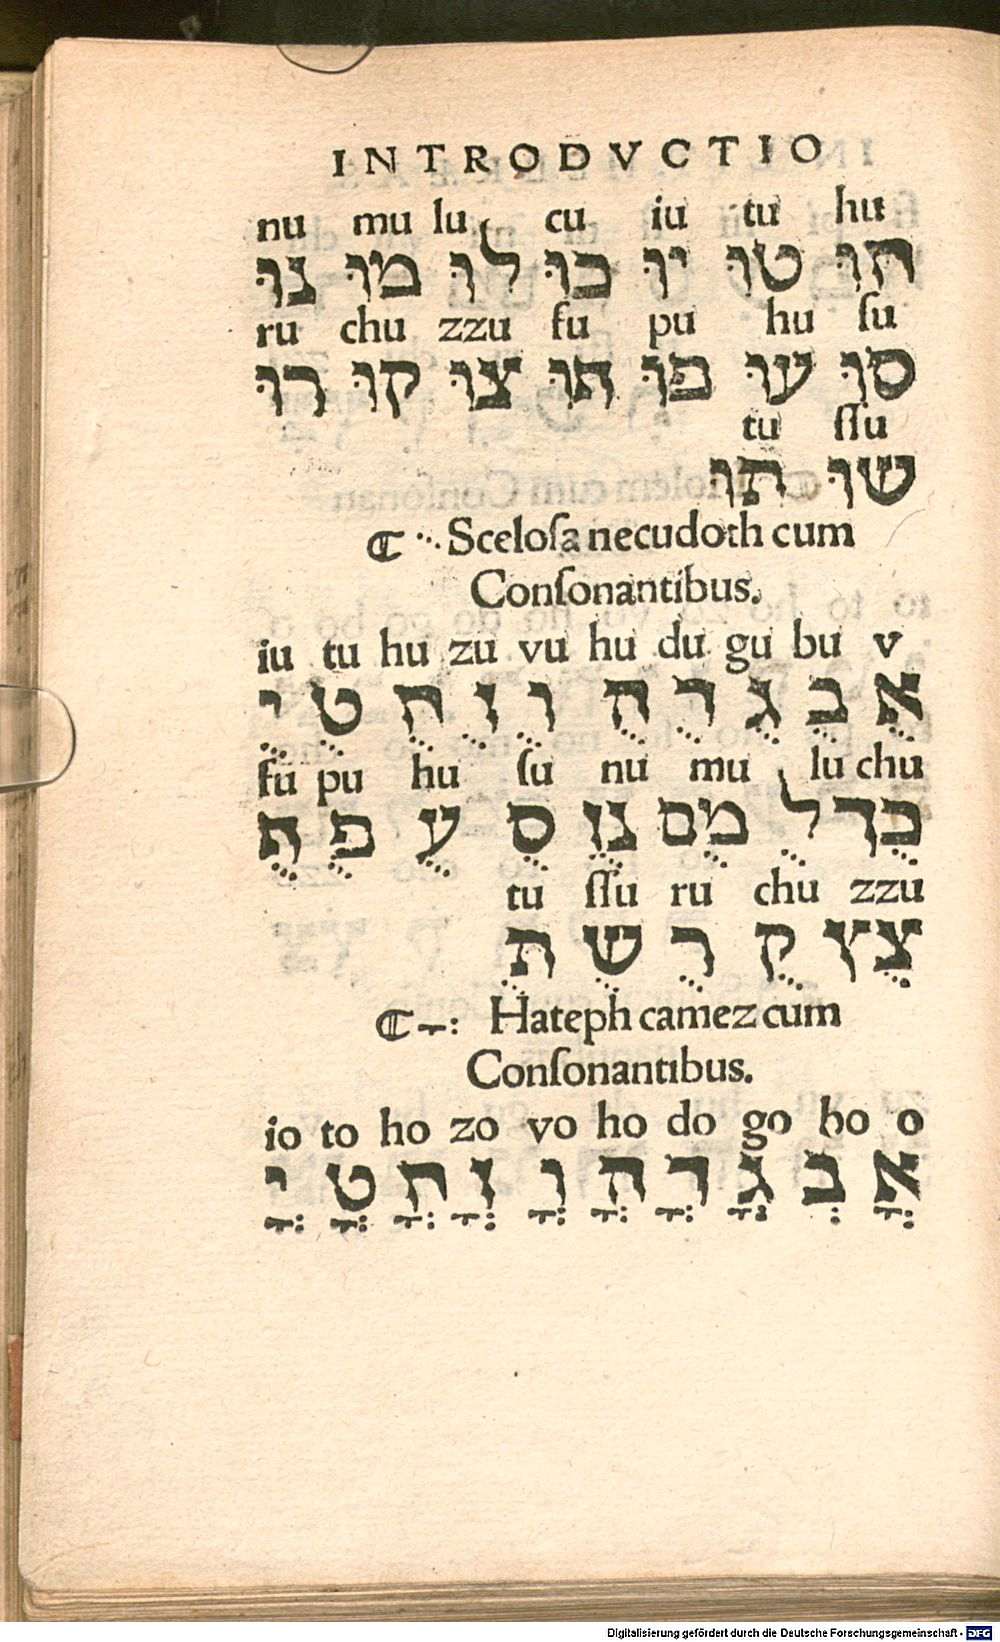 INTRODVCTIO
nu mu lu cu iu tu hu
חוּ טוּ יוּ כוּ לוּ מוּ נוּ
ru chu zzu fu pu hu ſu
סוּ עוּ פּוּ הוּ צוּ קוּ רוּ
tu ſſu
שוּ תוּ
☾ ⋱ Sceloſa necudoth cum
Conſonantibus.
iu tu hu zu vu hu du gu bu v
אֻ בֻּ גֻ דֻ הֻ וֻ זֻ חֻ טֻ יֻ
fu pu hu ſu nu mu lu chu
כֻּ ך לֻ מֻ ם נֻ ן סֻ עֻ פֻּ הֻ
tu ſſu ru chu zzu
צֻ ץ קֻ רֻ שֻ תֻ
☾ ־ָ: Hateph camez cum
Conſonantibus.
io to ho zo vo ho do go bo o
אֳ בְּ גֳ דֳ הֳ וֳ זֳ חֳ טֳ יֳ
Digitalisierung gefördert durch die Deutsche Forschungsgemeinschaft - DFG